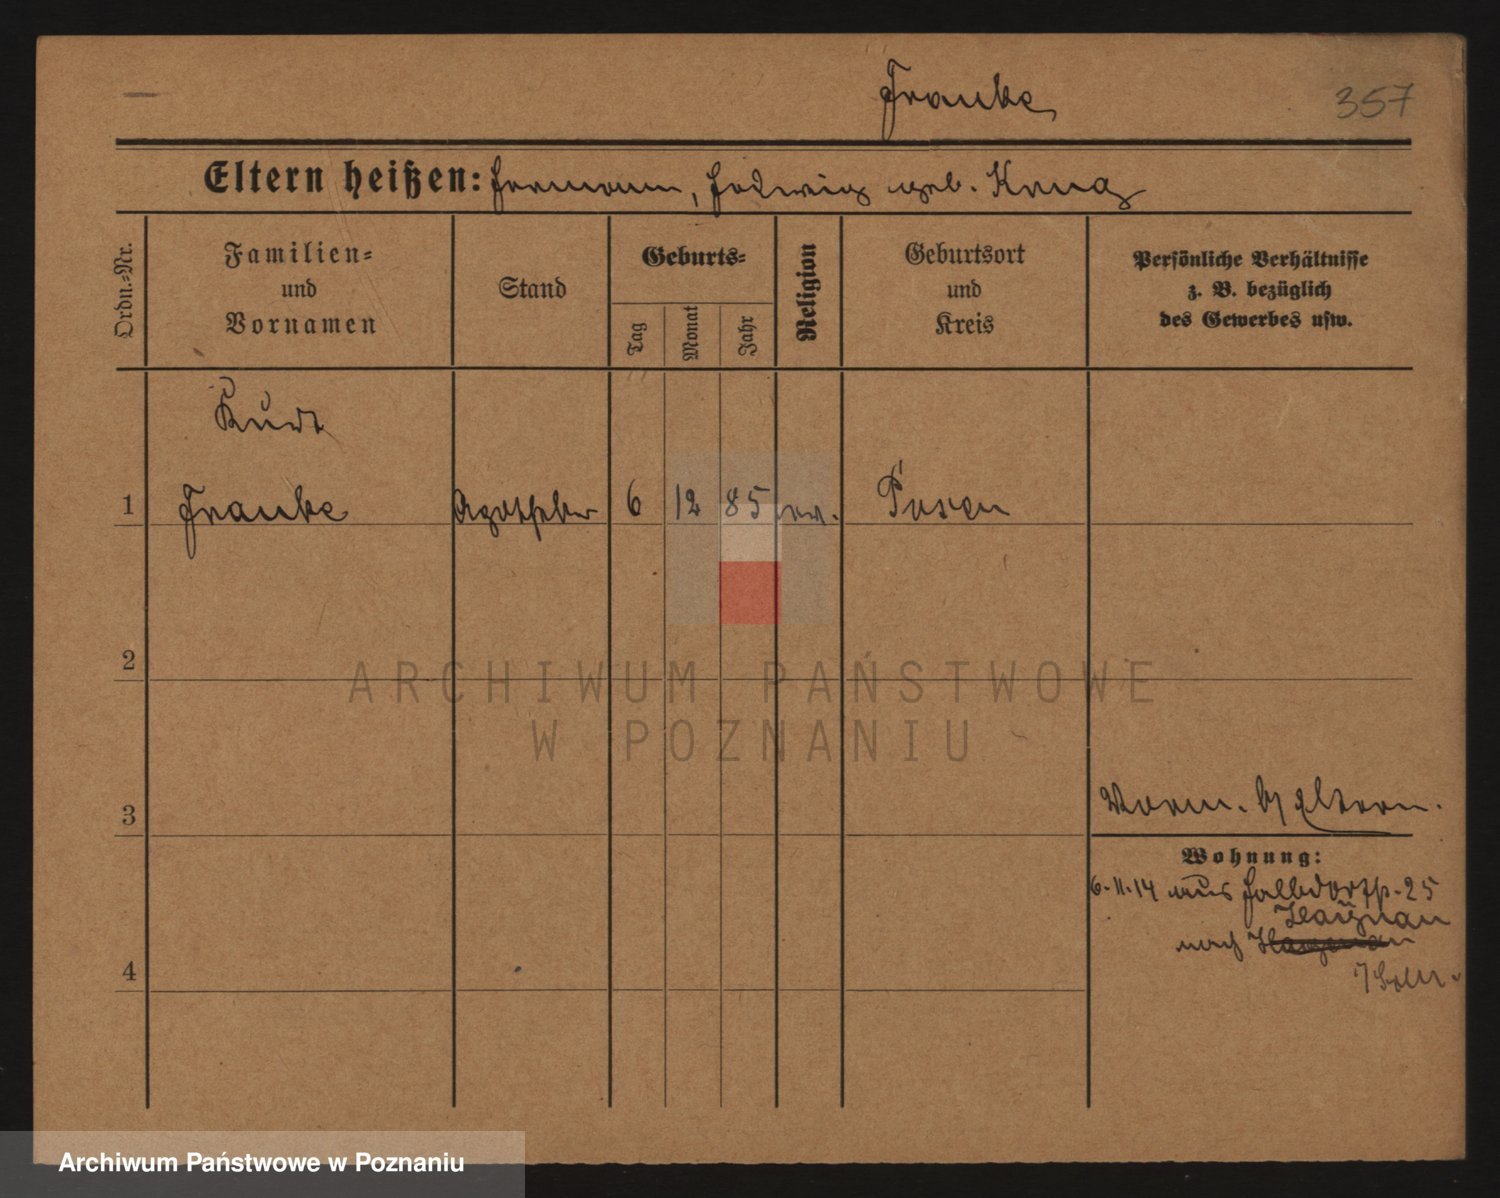 Franke
357
Eltern heißen: Hermann, Hedwig geb. Krug
Ordn.-Nr.
Familien-
und
Vornamen
Stand
Geburts-
Tag
Monat
Jahr
Religion
Geburtsort
und
Kreis
Persönliche Verhältnisse
z. B. bezüglich
des Gewerbes usw.
Kurt
1 Franke Apotheker 6 12 85 ev. Posen
2
ARCHIWUM PAŃSTWOWE
W POZNANIU
3
Vorm. b/ Eltern.
Wohnung:
6.11.14 aus Halbdorfstr. 25
Haynau
nach
4
Archiwum Państwowe w Poznaniu